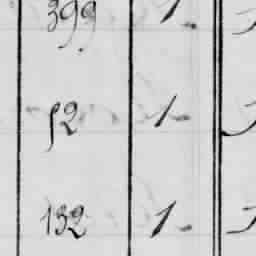 399 1.
52 1-
132 1-